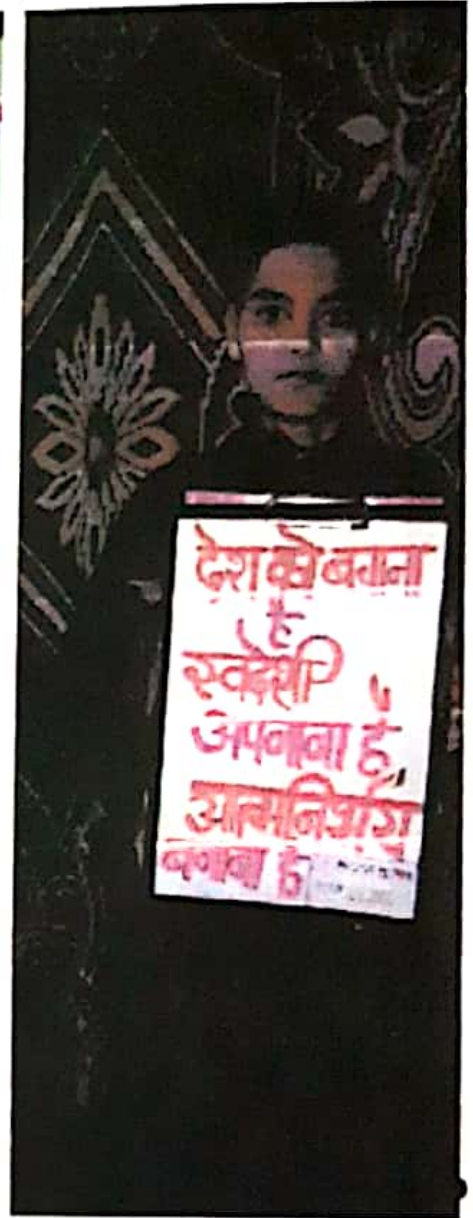 देश को बचाना
है
स्वदेशी
अपनाना है,
आत्मनिर्भर
बनाना है